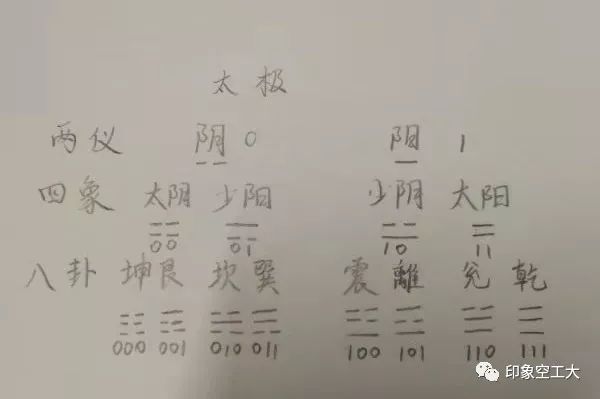 太极
两仪 阴 0 阳 1
四象 太阴 少阳 少阴 太阳
00 01 10 11
八卦 坤 艮 坎 巽 震 離 兑 乾
000 001 010 011 100 101 110 111
印象空工大